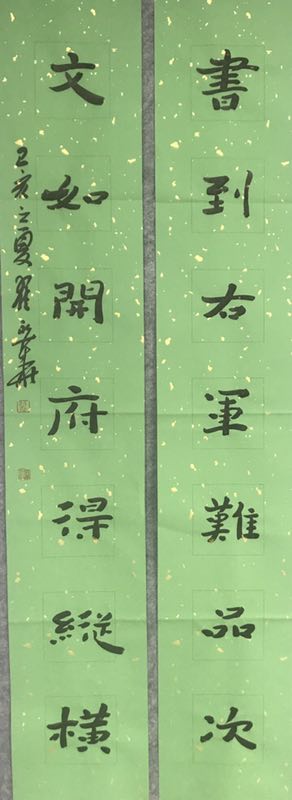 書到右軍難品次
文如開府得縱橫
己亥之夏